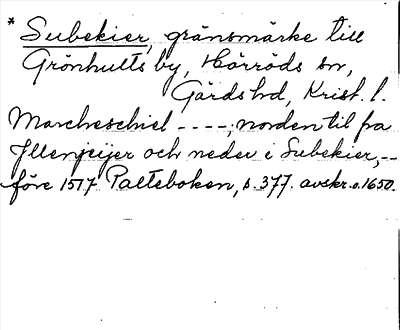 * Subekier, gränsmärke till
Grönhults by, Hörröds sn,
Gärds hd, Krist. l.
Marcheschiel ----; norden til fra
Jllenjeijer och neder i Subekier,--
före 1517 Palteboken, s. 377. avskr. o. 1650.